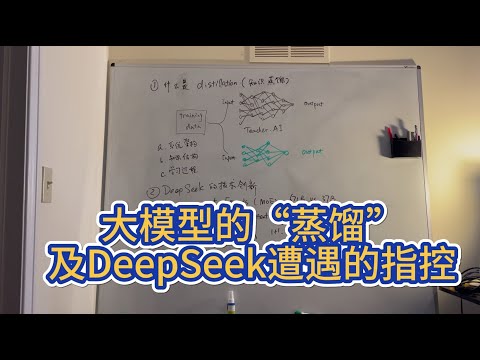 ① 什么是 distillation (知识蒸馏)
input
output
training
data
Teacher AI
input
output
a.
b. 知识结构
c. 学习过程
② DeepSeek 的技术创新
(MoE)
大模型的“蒸馏”
及DeepSeek遭遇的指控